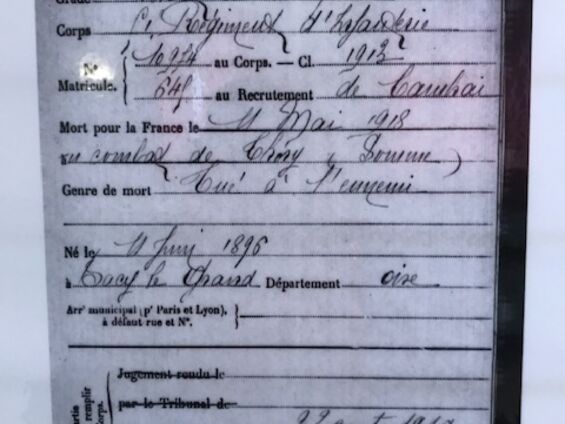 Grade
Corps Régiment d'Infanterie
N° Matricule. 10974 au Corps. — Cl. 1913
645 au Recrutement de Cambrai
Mort pour la France le 11 Mai 1918
au combat de Thory (Somme)
Genre de mort Tué à l'ennemi
Né le 11 Juin 1896
à Tracy le Grand Département Oise
Arr¹ municipal (p¹ Paris et Lyon),
à défaut rue et N°.
Jugement rendu le
par le Tribunal de